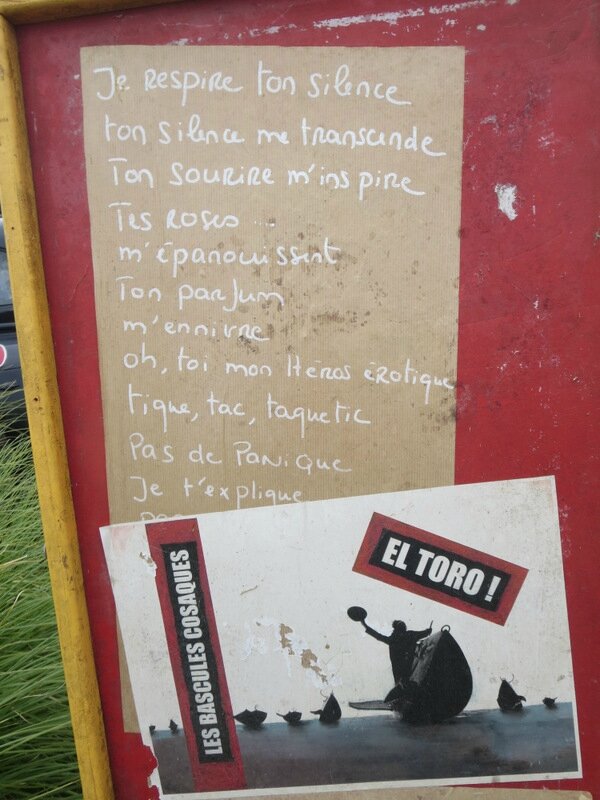 Je respire ton silence
ton silence me transcende
Ton sourire m'inspire
Tes roses ...
m'épanouissent
Ton parfum
m'ennivre
oh, toi mon Héros érotique
tique, tac, taquetic
Pas de Panique
Je t'explique
EL TORO !
LES BASCULES COSAQUES